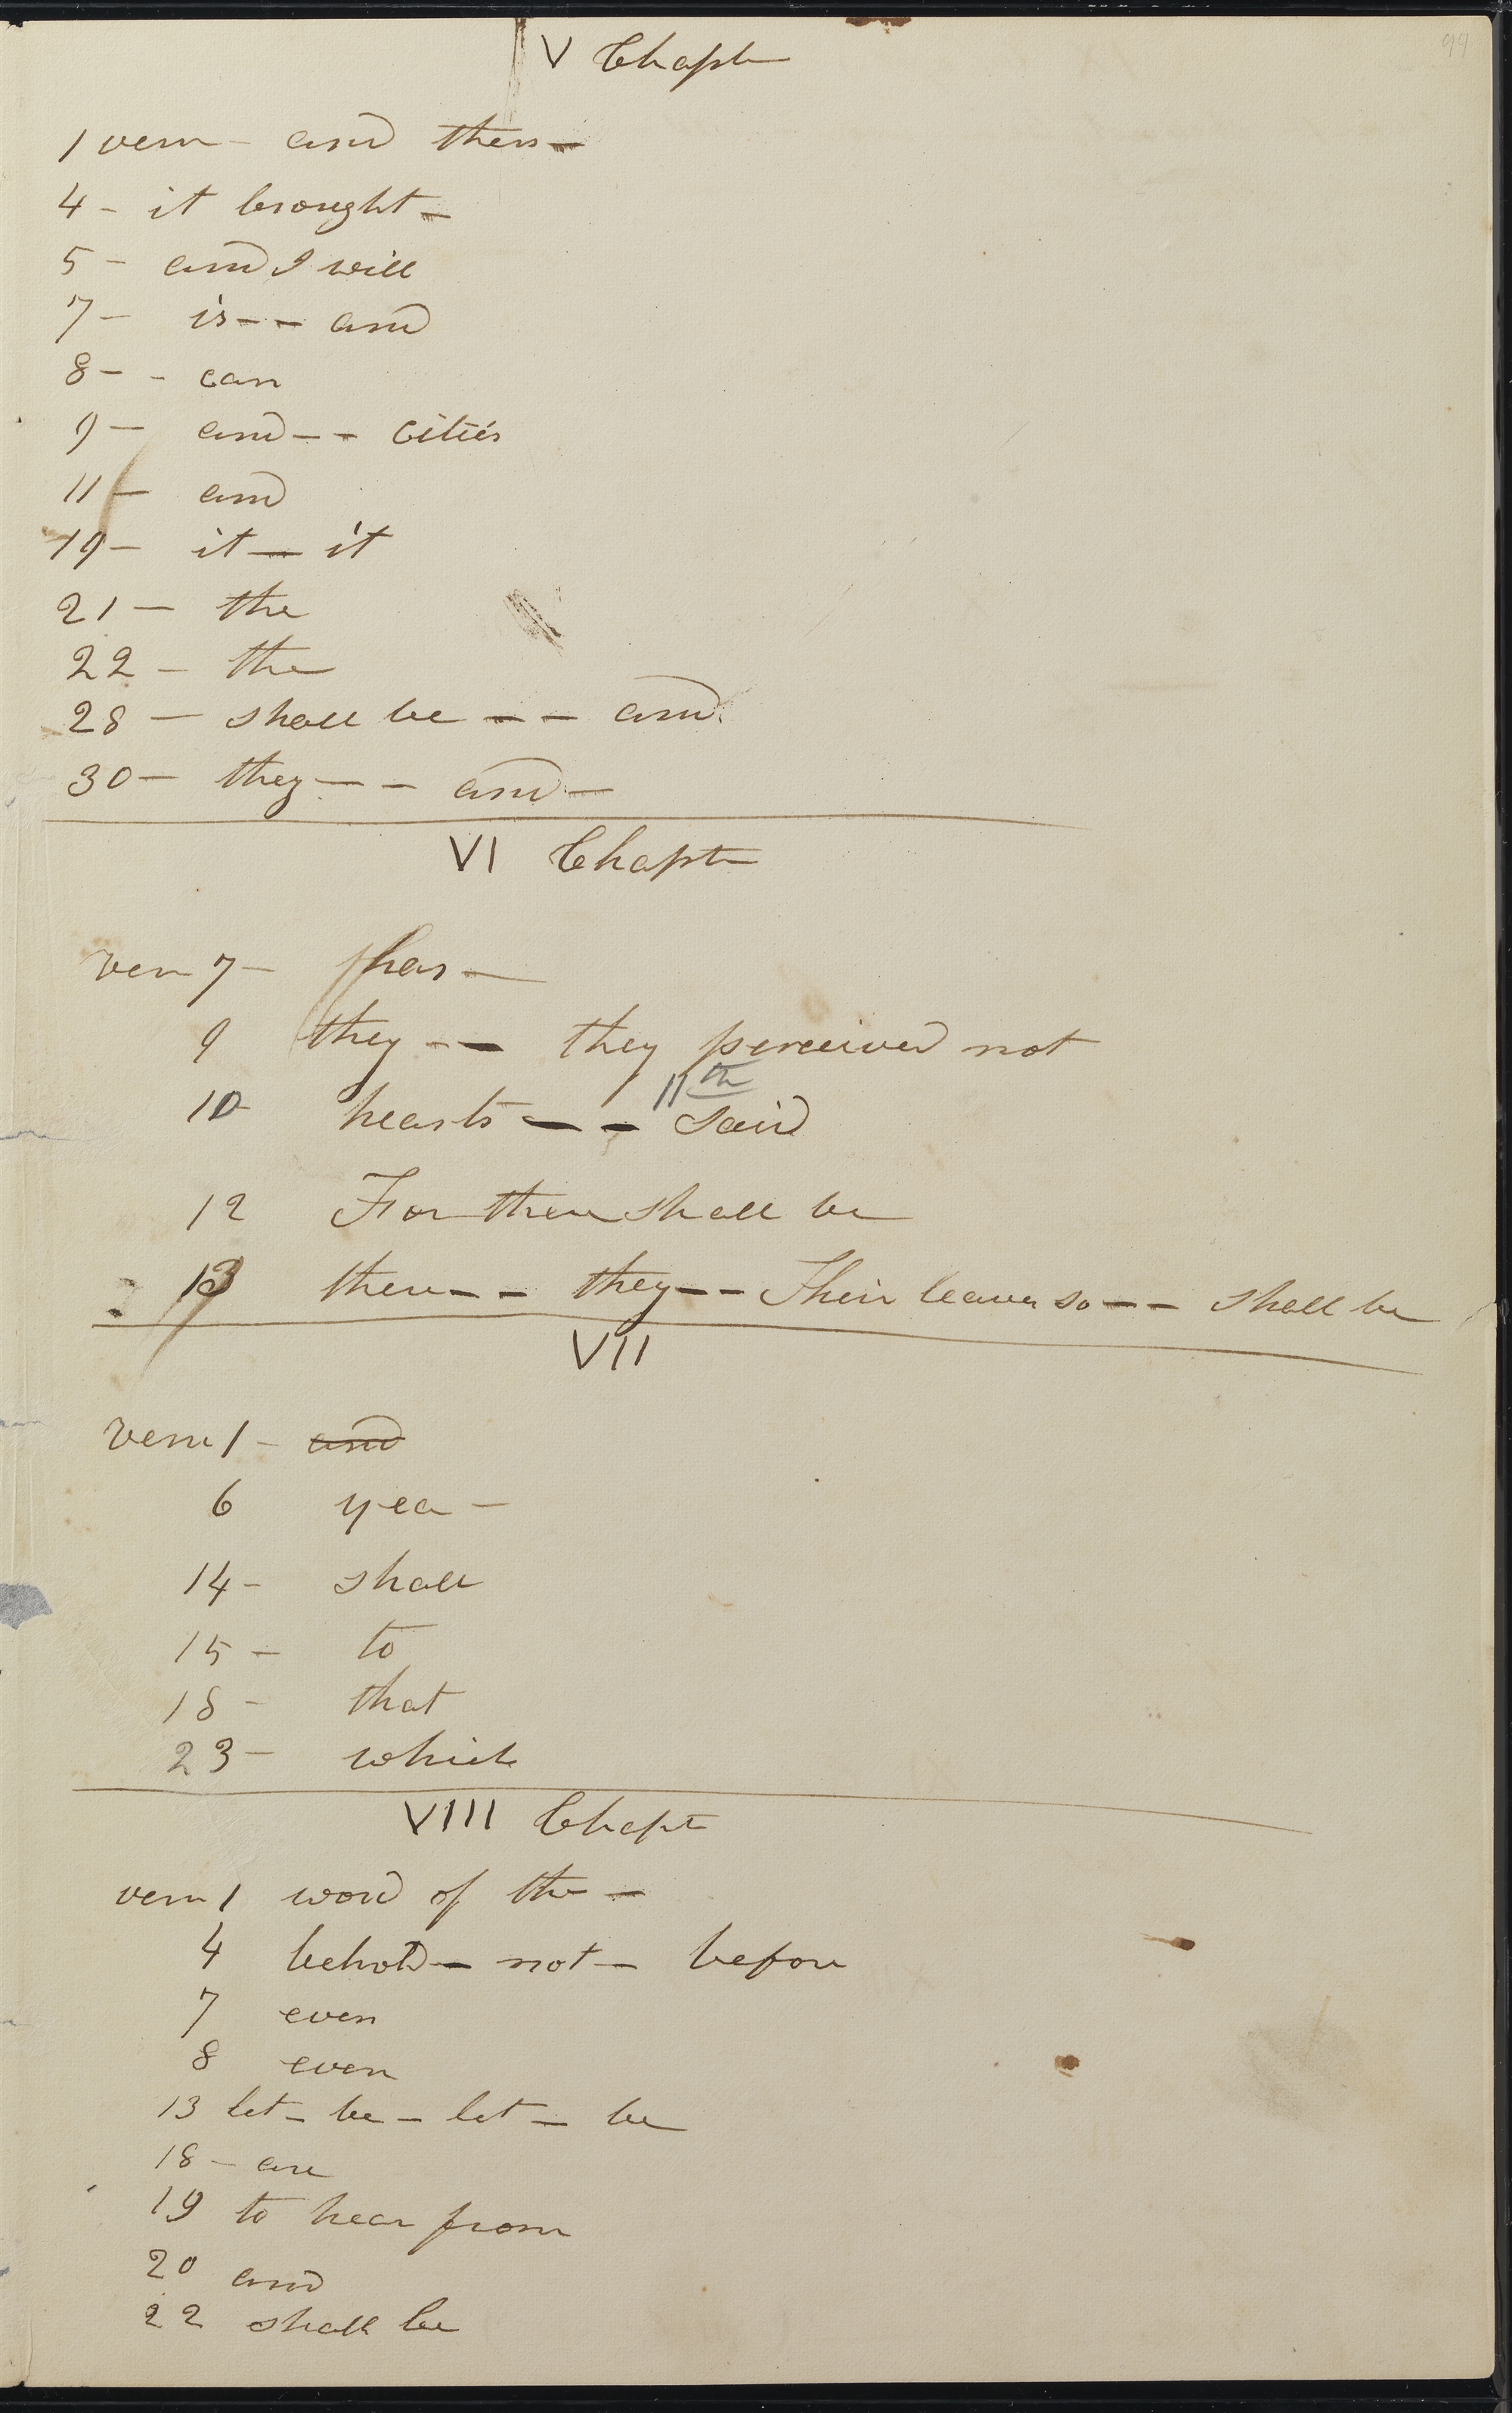 99
V Chapt
1 verse - and then -
4 - it brought -
5 - and I will
7 - is - - and
8 - - can
9 - and - - cities
11 - and
19 - it - it
21 - the
22 - the
28 - shall be - - and
30 - they - - and -
VI Chapt
verse 7 - has -
9 they - - they perceived not
11th
10 hearts - - said
12 For there shall be
13 there - - they - - Their leaves so - - shall be
VII
verse 1 - and
6 yea -
14 - shall
15 - to
18 - that
23 - which
VIII Chapt
verse 1 word of the -
4 behold - not - before
7 even
8 even
13 let - be - let - be
18 - are
19 to hear from
20 and
22 shall be